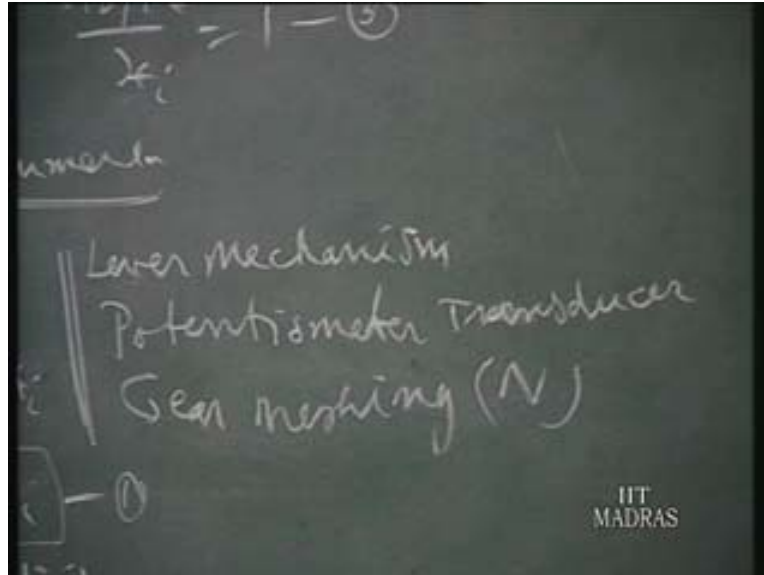 = 1 - ⑤
x_i
Lever mechanism
Potentiometer Transducer
Gear meshing (N)
- ①
IIT
MADRAS